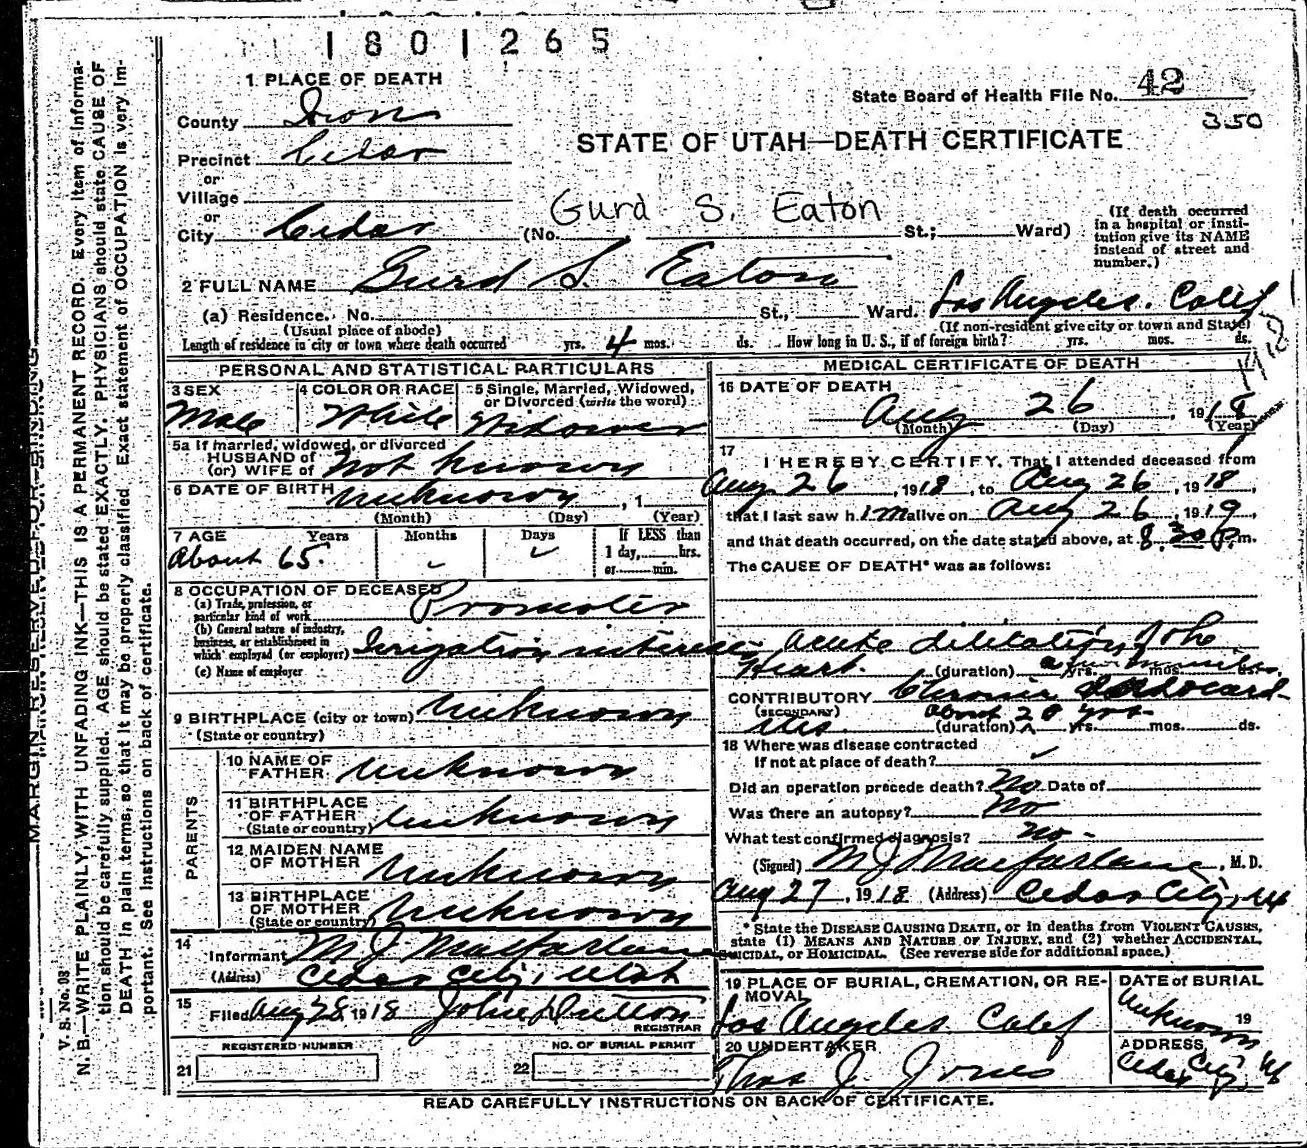 1801265
1 PLACE OF DEATH
State Board of Health File No. 42
350
County Iron
STATE OF UTAH—DEATH CERTIFICATE
Precinct Cedar
or
Village
or
City Cedar (No. St.; Ward)
Gurd S. Eaton
(If death occurred
in a hospital or insti-
tution give its NAME
instead of street and
number.)
2 FULL NAME Gurd S. Eaton
(a) Residence. No. St., Ward. Los Angeles. Calif
(Usual place of abode) (If non-resident give city or town and State)
Length of residence in city or town where death occurred yrs. 4 mos. ds. How long in U. S., if of foreign birth? yrs. mos. ds.
PERSONAL AND STATISTICAL PARTICULARS
3 SEX 4 COLOR OR RACE 5 Single, Married, Widowed,
or Divorced (write the word)
Male White Widower
5a If married, widowed, or divorced
HUSBAND of
(or) WIFE of Not known
6 DATE OF BIRTH unknown , 1
(Month) (Day) (Year)
7 AGE Years Months Days If LESS than
1 day, hrs.
or min.
About 65. -
8 OCCUPATION OF DECEASED
(a) Trade, profession, or
particular kind of work Promoter
(b) General nature of industry,
business, or establishment in
which employed (or employer) Irrigation interests
(c) Name of employer
9 BIRTHPLACE (city or town) Unknown
(State or country)
PARENTS
10 NAME OF
FATHER Unknown
11 BIRTHPLACE
OF FATHER
(State or country) Unknown
12 MAIDEN NAME
OF MOTHER Unknown
13 BIRTHPLACE
OF MOTHER
(State or country) Unknown
14
Informant M J Macfarlane
(Address) Cedar City, Utah
15
Filed Aug 28 1918 John Dutton
REGISTRAR
REGISTERED NUMBER NO. OF BURIAL PERMIT
21 22
MEDICAL CERTIFICATE OF DEATH
16 DATE OF DEATH
Aug 26 , 1918
(Month) (Day) (Year)
17
I HEREBY CERTIFY, That I attended deceased from
Aug 26 , 1918 , to Aug 26 , 1918 ,
that I last saw h im alive on Aug 26 , 1919
and that death occurred, on the date stated above, at 8.30 P.m.
The CAUSE OF DEATH* was as follows:
Acute dilitation of the
Heart. (duration) a few minutes yrs. mos. ds.
CONTRIBUTORY Chronic
(SECONDARY) about 20 yrs
(duration) yrs. mos. ds.
18 Where was disease contracted
If not at place of death?
Did an operation precede death? No Date of
Was there an autopsy? No
What test confirmed diagnosis? no -
(Signed) M J Macfarlane , M. D.
Aug 27 , 1918 (Address) Cedar City, Ut
* State the DISEASE CAUSING DEATH, or in deaths from VIOLENT CAUSES,
state (1) MEANS AND NATURE OF INJURY, and (2) whether ACCIDENTAL,
SUICIDAL, or HOMICIDAL. (See reverse side for additional space.)
19 PLACE OF BURIAL, CREMATION, OR RE-
MOVAL
Los Angeles Calif
DATE of BURIAL
Unknown 19
20 UNDERTAKER
Thos J. Jones
ADDRESS
Cedar City, Ut
READ CAREFULLY INSTRUCTIONS ON BACK OF CERTIFICATE.
MARGIN RESERVED FOR BINDING
V. S. No. 98
N. B.—WRITE PLAINLY, WITH UNFADING INK—THIS IS A PERMANENT RECORD. Every item of informa-
tion should be carefully supplied. AGE should be stated EXACTLY. PHYSICIANS should state CAUSE OF
DEATH in plain terms, so that it may be properly classified. Exact statement of OCCUPATION is very im-
portant. See instructions on back of certificate.